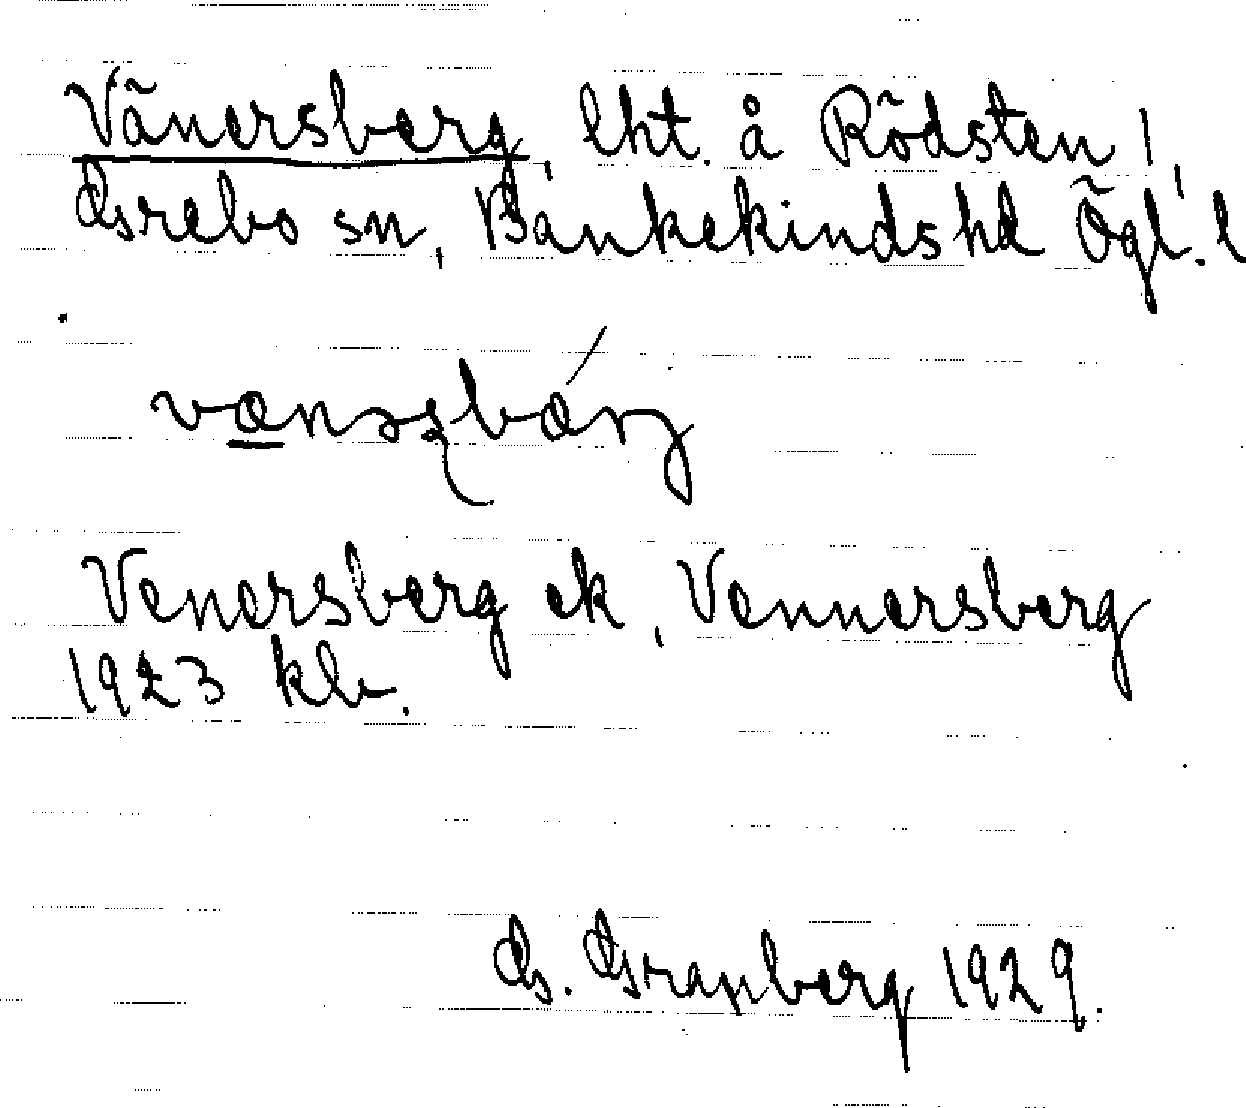 Vänersberg, lht. å Rödsten,
Grebo sn, Bankekinds hd Ögl.
vænəʂbærj
Venersberg ek, Vennersberg
1923 kb.
G. Granberg 1929.